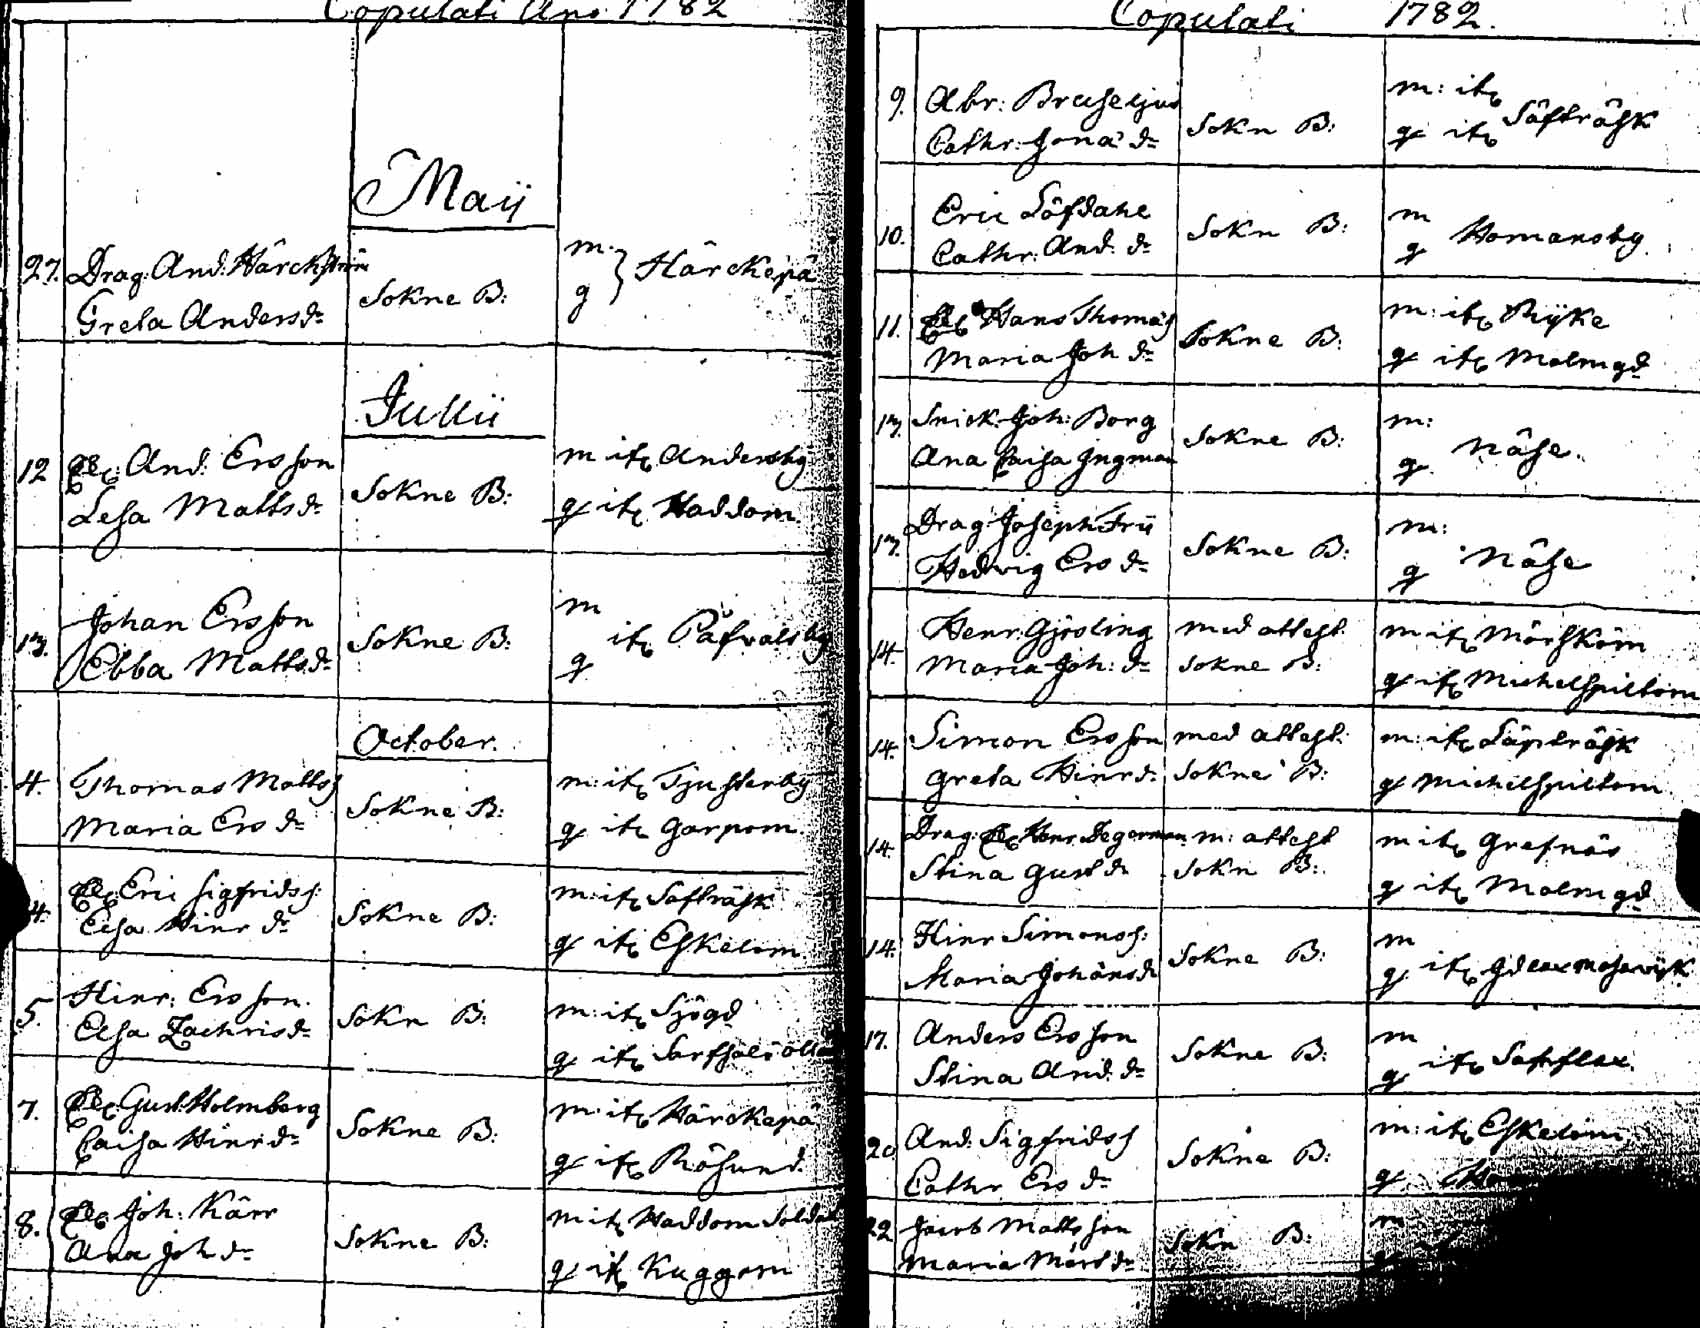 Copulati Ano 1782
Maij
27. Drag: And: Härckström
Greta Andersd:
Sokne B:
m:
q
Härckepä
Julii
12 And: Ersson
Lesa Mattsd:
Sokne B:
m itr Andersby
q itr Haddom
13. Johan Ersson
Ebba Mattsd:
Sokne B:
m
q
itr Påfvalsby
October.
4. Thomas Matts
Maria Ersd:
Sokne B:
m: itr Tjusterby
q itr Garpom
4. Eric Sigfridss:
Elsa Hinrd:
Sokne B:
m: itr Säfträsk
q itr Eskelom
5. Hinr: Ersson.
Elsa Zachrisd:
Sokn B:
m: itr Sjögd
q itr
7. Gust: Holmberg
Caisa Hinrd:
Sokne B:
m: itr Härckepä
q itr Rösund.
8. Joh: Kärr
Ana Johd:
Sokne B:
m itr Haddom Soldat
q itr Kuggom
Copulati 1782.
9. Abr: Bruseljus
Cathr: Jonæ d:
Sokn B:
m: itr
q itr
Säfträsk
10. Eric Löfdahl
Cathr: And: d:
Sokn B:
m
q
Homansby
11. Hans Thomas
Maria Joh d:
Sokne B:
m: itr Rijke
q itr Malmgd:
13. Snick: Joh: Borg
Ana Caisa Ingman
Sokne B:
m:
q
Näse.
13. Drag: Joseph Frii
Hedvig Ersd:
Sokne B:
m:
q
Näse
14. Henr: Gjösling
Maria Joh: d:
med attest
Sokne B:
m itr Mörskom
q itr Michelspiltom
14. Simon Ersson
Greta Hinrd:
med attest.
Sokne B:
m: itr Läpträsk
q Michelspiltom
14. Drag: Henr: Degerman
Stina Gustd:
m: attest
Sokn B:
m itr Grefnäs
q itr Malmgd
14. Hinr Simonss:
Maria Johansd:
Sokne B:
m
q
itr
17. Anders Ersson
Stina And: d:
Sokne B:
m
q
itr
20 And: Sigfridss
Cathr Ersd:
Sokne B:
m: itr Eskelom
q
22 Jacob Mattsson
Maria Mårtd:
Sokn B:
m